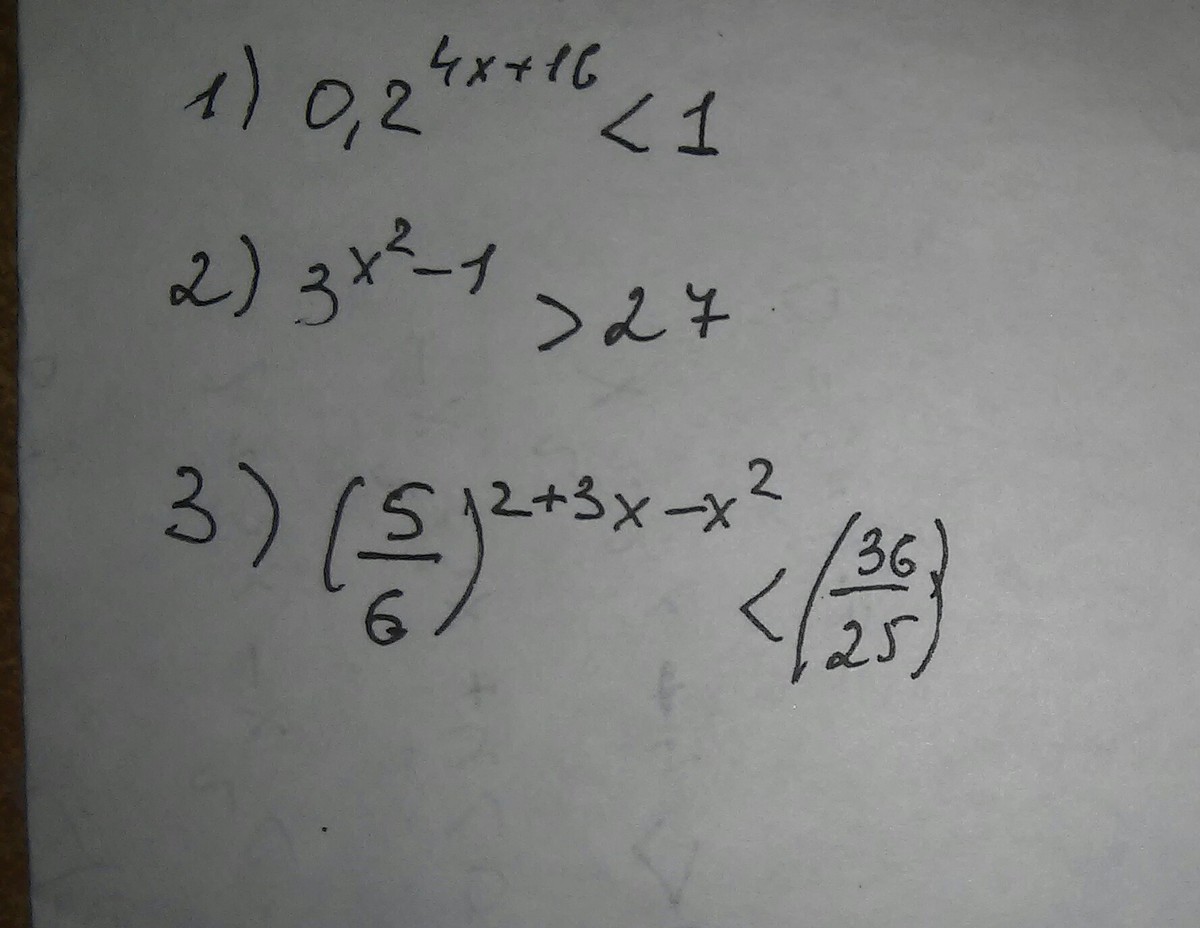 1) 0,2^{4x+16} < 1
2) 3^{x^2-1} > 27
3) (5/6)^{2+3x-x^2} < (36/25)